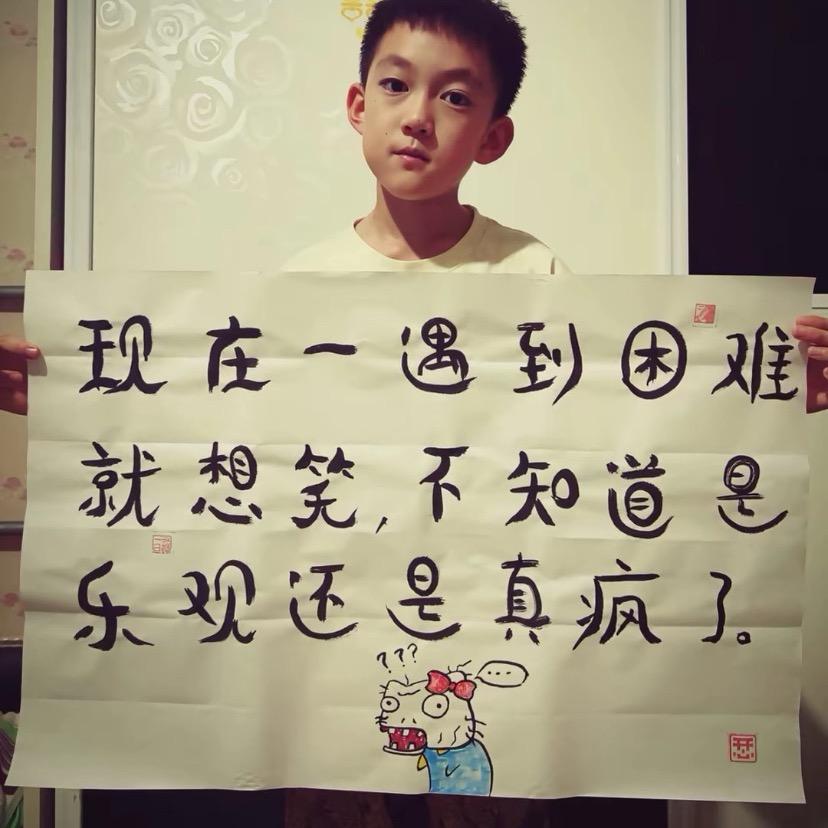 现在一遇到困难
就想笑,不知道是
乐观还是真疯了。
???
...